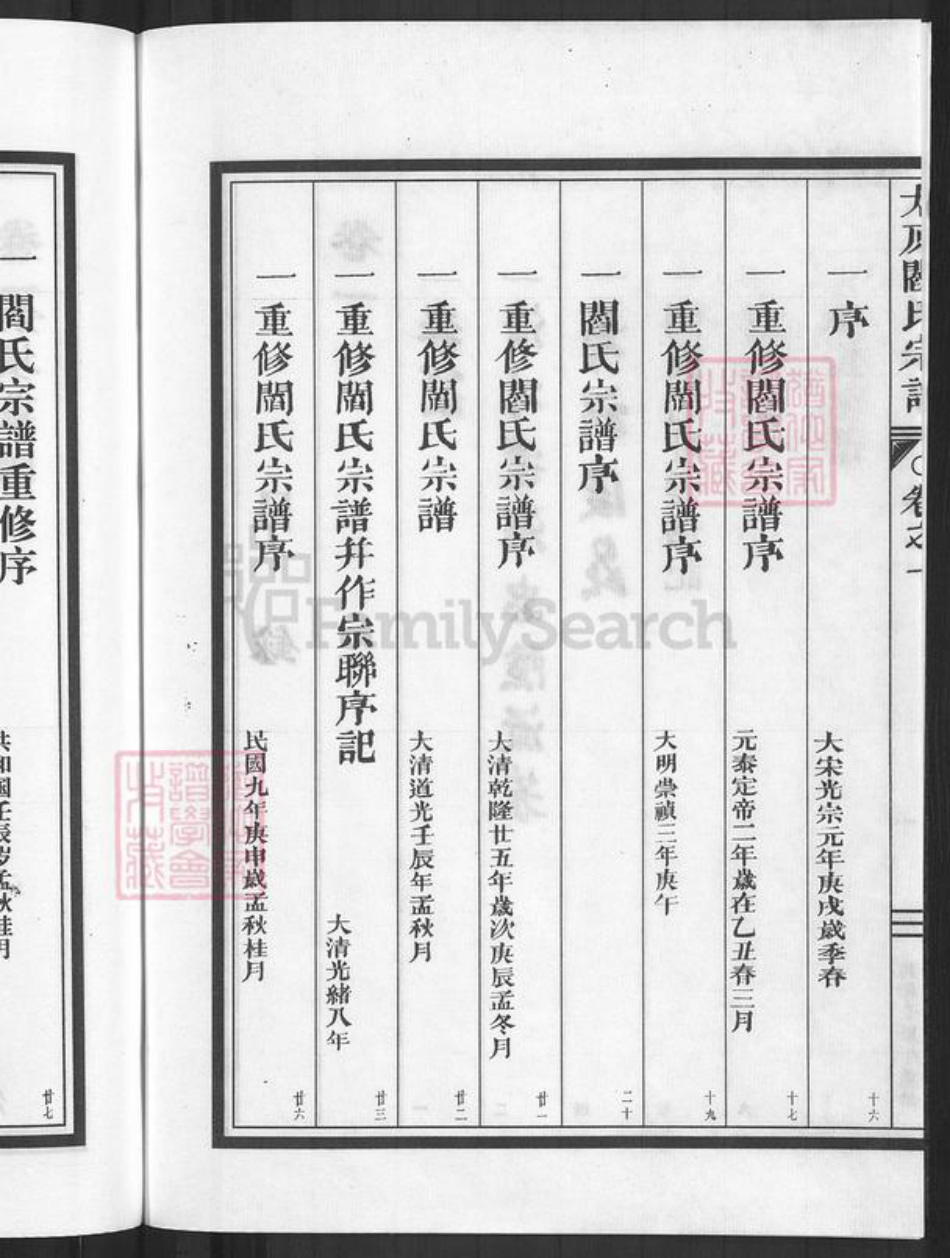 太原閻氏宗譜 卷之一
一序 大宋光宗元年庚戌歲季春 十六
一重修閻氏宗譜序 元泰定帝二年歲在乙丑春三月 十七
一重修閻氏宗譜序 大明崇禎三年庚午 十九
一閻氏宗譜序 二十
一重修閻氏宗譜序 大清乾隆廿五年歲次庚辰孟冬月 廿一
一重修閻氏宗譜 大清道光壬辰年孟秋月 廿二
一重修閻氏宗譜并作宗聯序記 大清光緒八年 廿三
一重修閻氏宗譜序 民國九年庚申歲孟秋桂月 廿六
一閻氏宗譜重修序 共和國壬辰岁孟秋桂月 廿七
FamilySearch